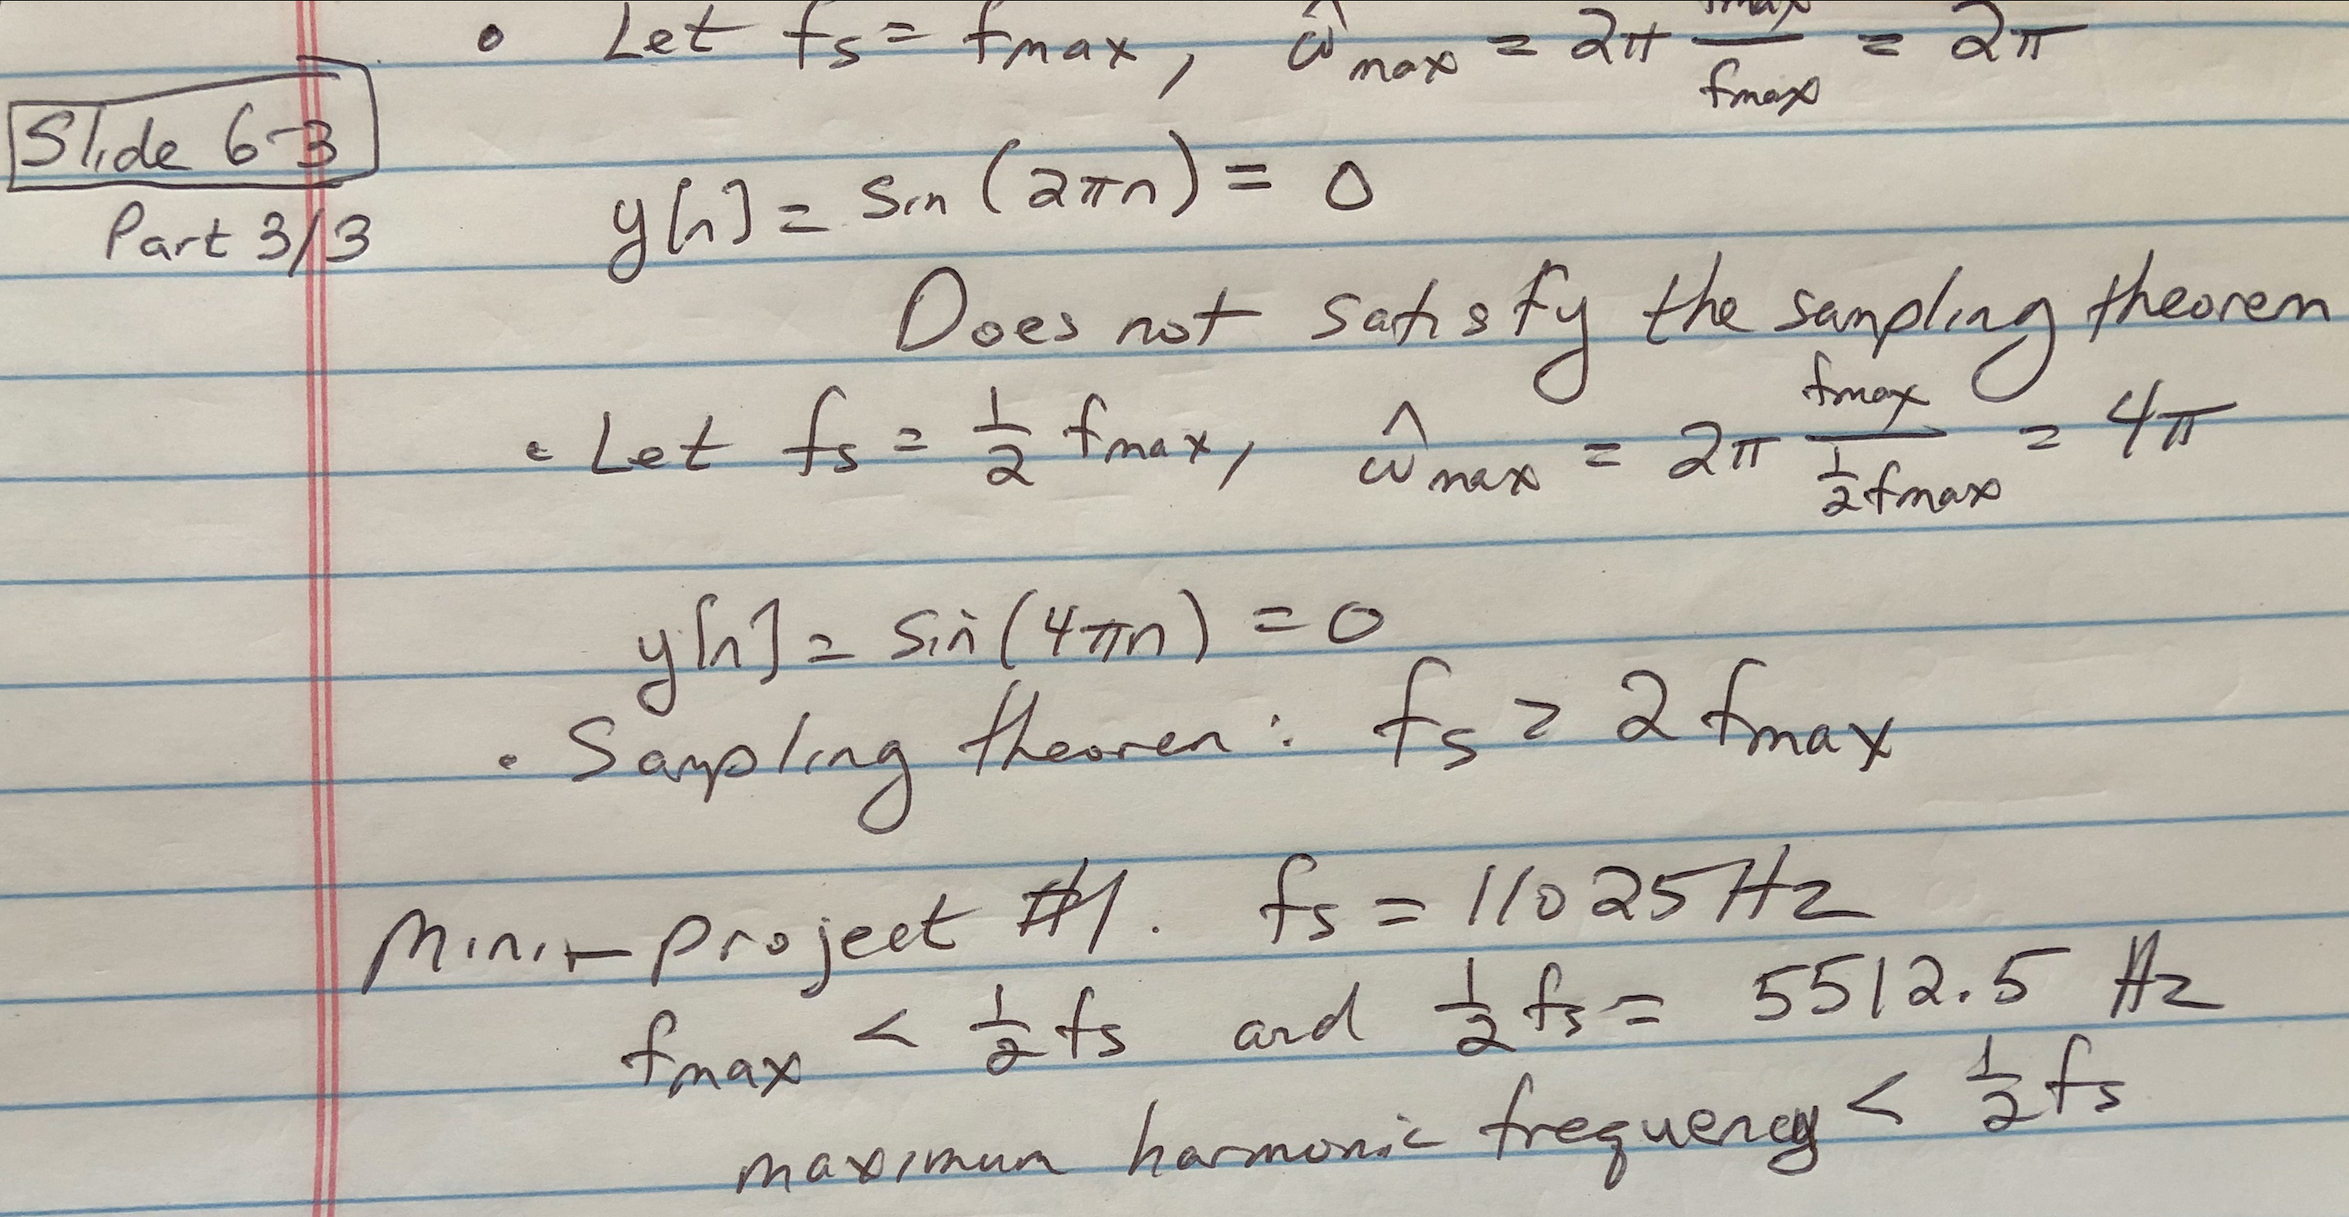 • Let fs = fmax, ω̂max = 2π fmax/fmax = 2π
Slide 6-3
Part 3/3
y[n] = sin (2πn) = 0
Does not satisfy the sampling theorem
• Let fs = 1/2 fmax, ω̂max = 2π fmax/(1/2 fmax) = 4π
y[n] = sin(4πn) = 0
• Sampling theorem: fs > 2 fmax
Mini-project #1. fs = 11025 Hz
fmax < 1/2 fs and 1/2 fs = 5512.5 Hz
maximum harmonic frequency < 1/2 fs